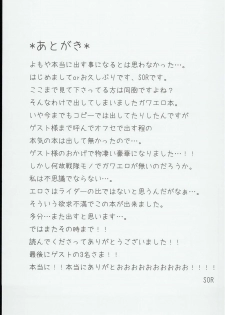 *あとがき*
よもや本当に出す事になるとは思わなかった…。
はじめましてorお久しぶりです、SORです。
ここまで見て下さってる方は同胞ですよね?
そんなわけで出してしまいましたガワエロ本。
いや今までもコピーでは出してたりしたんですが
ゲスト様まで呼んでオフセで出す程の
本気の本は出して無かった!
ゲスト様のおかげで物凄い豪華になりました…!!
しかし何故戦隊モノでガワエロが無いのだろうか。
私は不思議でならない…。
エロさはライダーの比ではないと思うんだがなぁ…。
そういう欲求不満でこの本が出来ました。
今分…また出すと思います…。
ではまたその時まで!!
読んでくださってありがとうございました!!
最後にゲストの3名さま!!
本当に!!本当にありがとおおおおおおおおおお!!!!
SOR